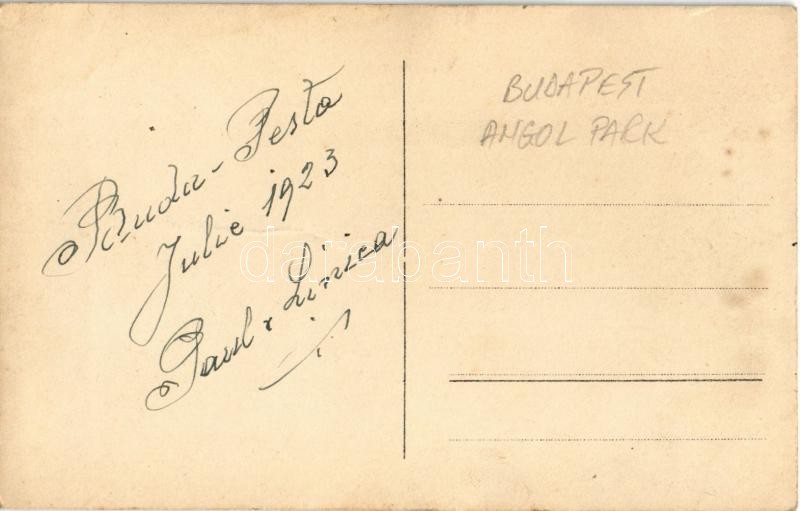 Buda-Pesta
Julie 1923
Paul & Linica
BUDAPEST
ANGOL PARK
darabanth